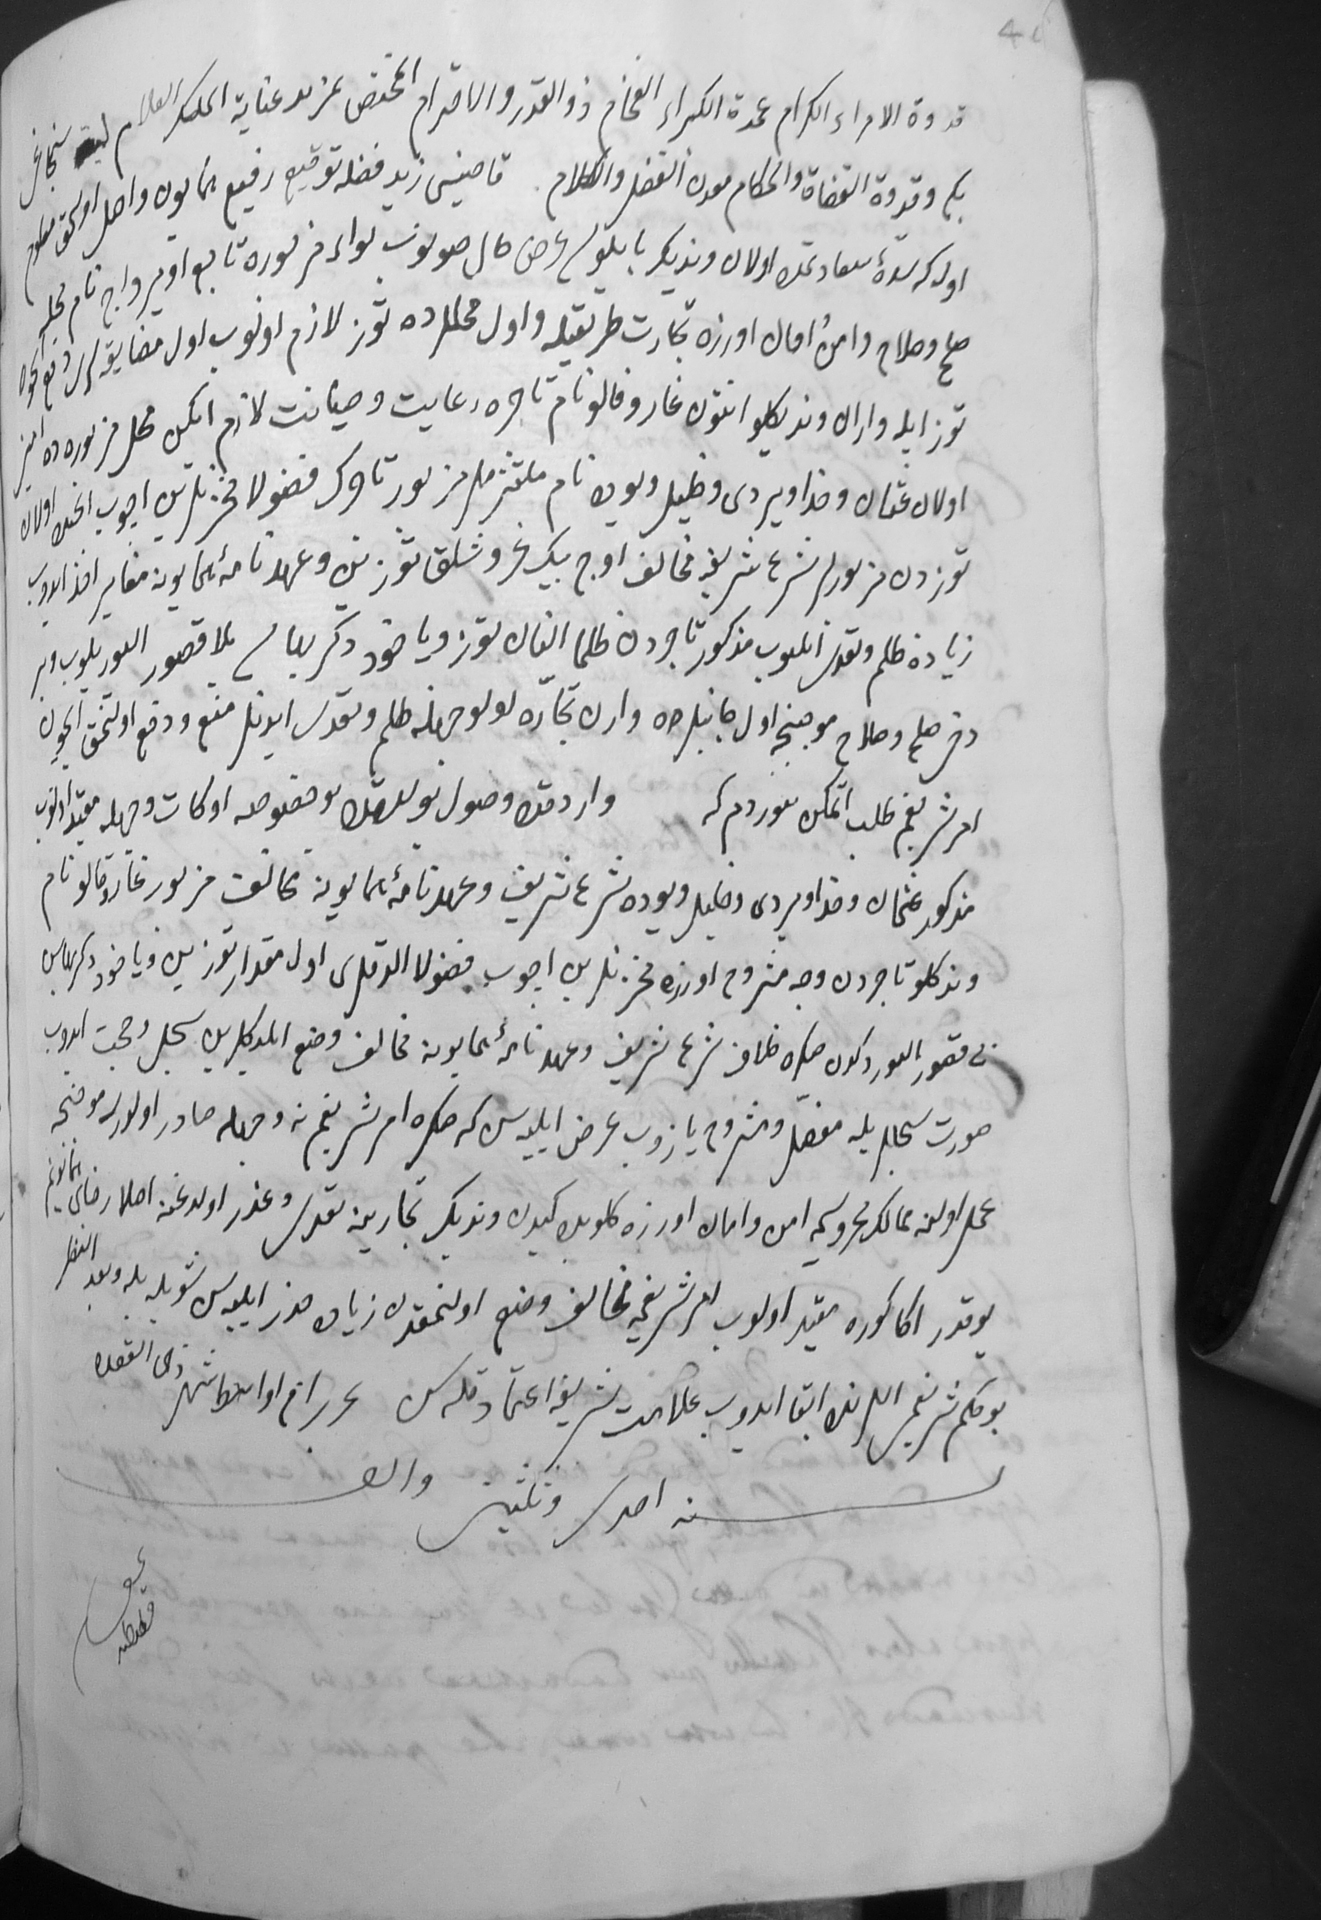 قدوة الامراء الكرام عمدة الكبراء الفخام ذو القدر والاحترام المختص بمزيد عناية الملك العلام سنجاغى
بكى وقدوة القضاة والحكام معدن الفضل والكلام قاضيسى زيد فضله توقيع رفيع همايون واصل اوليجق معلوم
اوله كه سدهٔ سعادتمده اولان ونديك بايلوسى عرض حال صونوب لواء مزبوره تابع نام محله
صلح وصلاح وامن وامان اوزره تجارت طريقيله واول محللرده توز لازم اولوب اول مضايقه لرى دفع ايچون
توز ايله واران ونديكلو انتون غاروفالو نام تاجره رعايت وصيانت لازم ايكن محل مزبوره ده امين
اولان عثمان وخداويردى وخليل ويوده نام ملتزملر مزبور تاجرك فضولا مخزنلرين اچوب اولان
توزدن مزبورلر شرع شريفه مخالف اوچ بيك غروشلق توزين وعهدنامهٔ همايونه مغاير اخذ ايدوب
زياده ظلم وتعدى ايليوب مذكور تاجردن ظلما النان توز وياخود دكر بهاسى بلا قصور اليويريلوب
صلح وصلاح موجبنجه اول جانبلرده واران تجاره بو وجهله ظلم وتعدى ايدنلر منع ودفع اولنمق ايچون
امر شريفم طلب اتمكين بيوردم كه واردقده وصول بولدقده بو خصوصه اوكات وجهله مقيد اولوب
مذكور عثمان وخداويردى وخليل ويوده شرع شريف وعهدنامهٔ همايونه مخالف مزبور غاروفالو نام
ونديكلو تاجردن وجه مشروح اوزره مخزنلرين اچوب فضولا الدقلرى اول مقدار توزين وياخود دكر بهاسن
بى قصور اليويردكدن صكره خلاف شرع شريف وعهدنامهٔ همايونه مخالف وضع ايلدكلرين سجل وحجت ايدوب
صورت سجليله مفصل ومشروح يازوب عرض ايليه سن كه صكره امر شريفم نه وجهله صادر اولورسه موجبنجه
عمل اولنه ممالك محروسه مه امن وامان اوزره كلوب كيدن ونديك تجارينه تعدى وغدر اولدغنه اصلا رضاى همايونم
يوقدر اكا كوره مقيد اولوب امر شريفمه مخالف وضع اولنمقدن زياده حذر ايليه سن شويله بله سن وبعد النظر
بو حكم شريفمى اللرنده ابقا ايدوب علامت شريفه اعتماد قله سن تحريرا فى اواسط شهر ذى القعده
سنه احدى وثلثين والف
قسطنطنيه